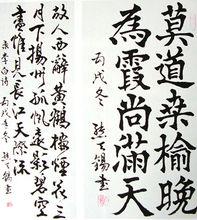 莫道桑榆晚
為霞尚滿天
丙戌冬 天錫書
故人西辭黃鶴樓煙花三
月下揚州孤帆遠影碧空
盡惟見長江天際流
录李白诗 丙戌冬 天錫書